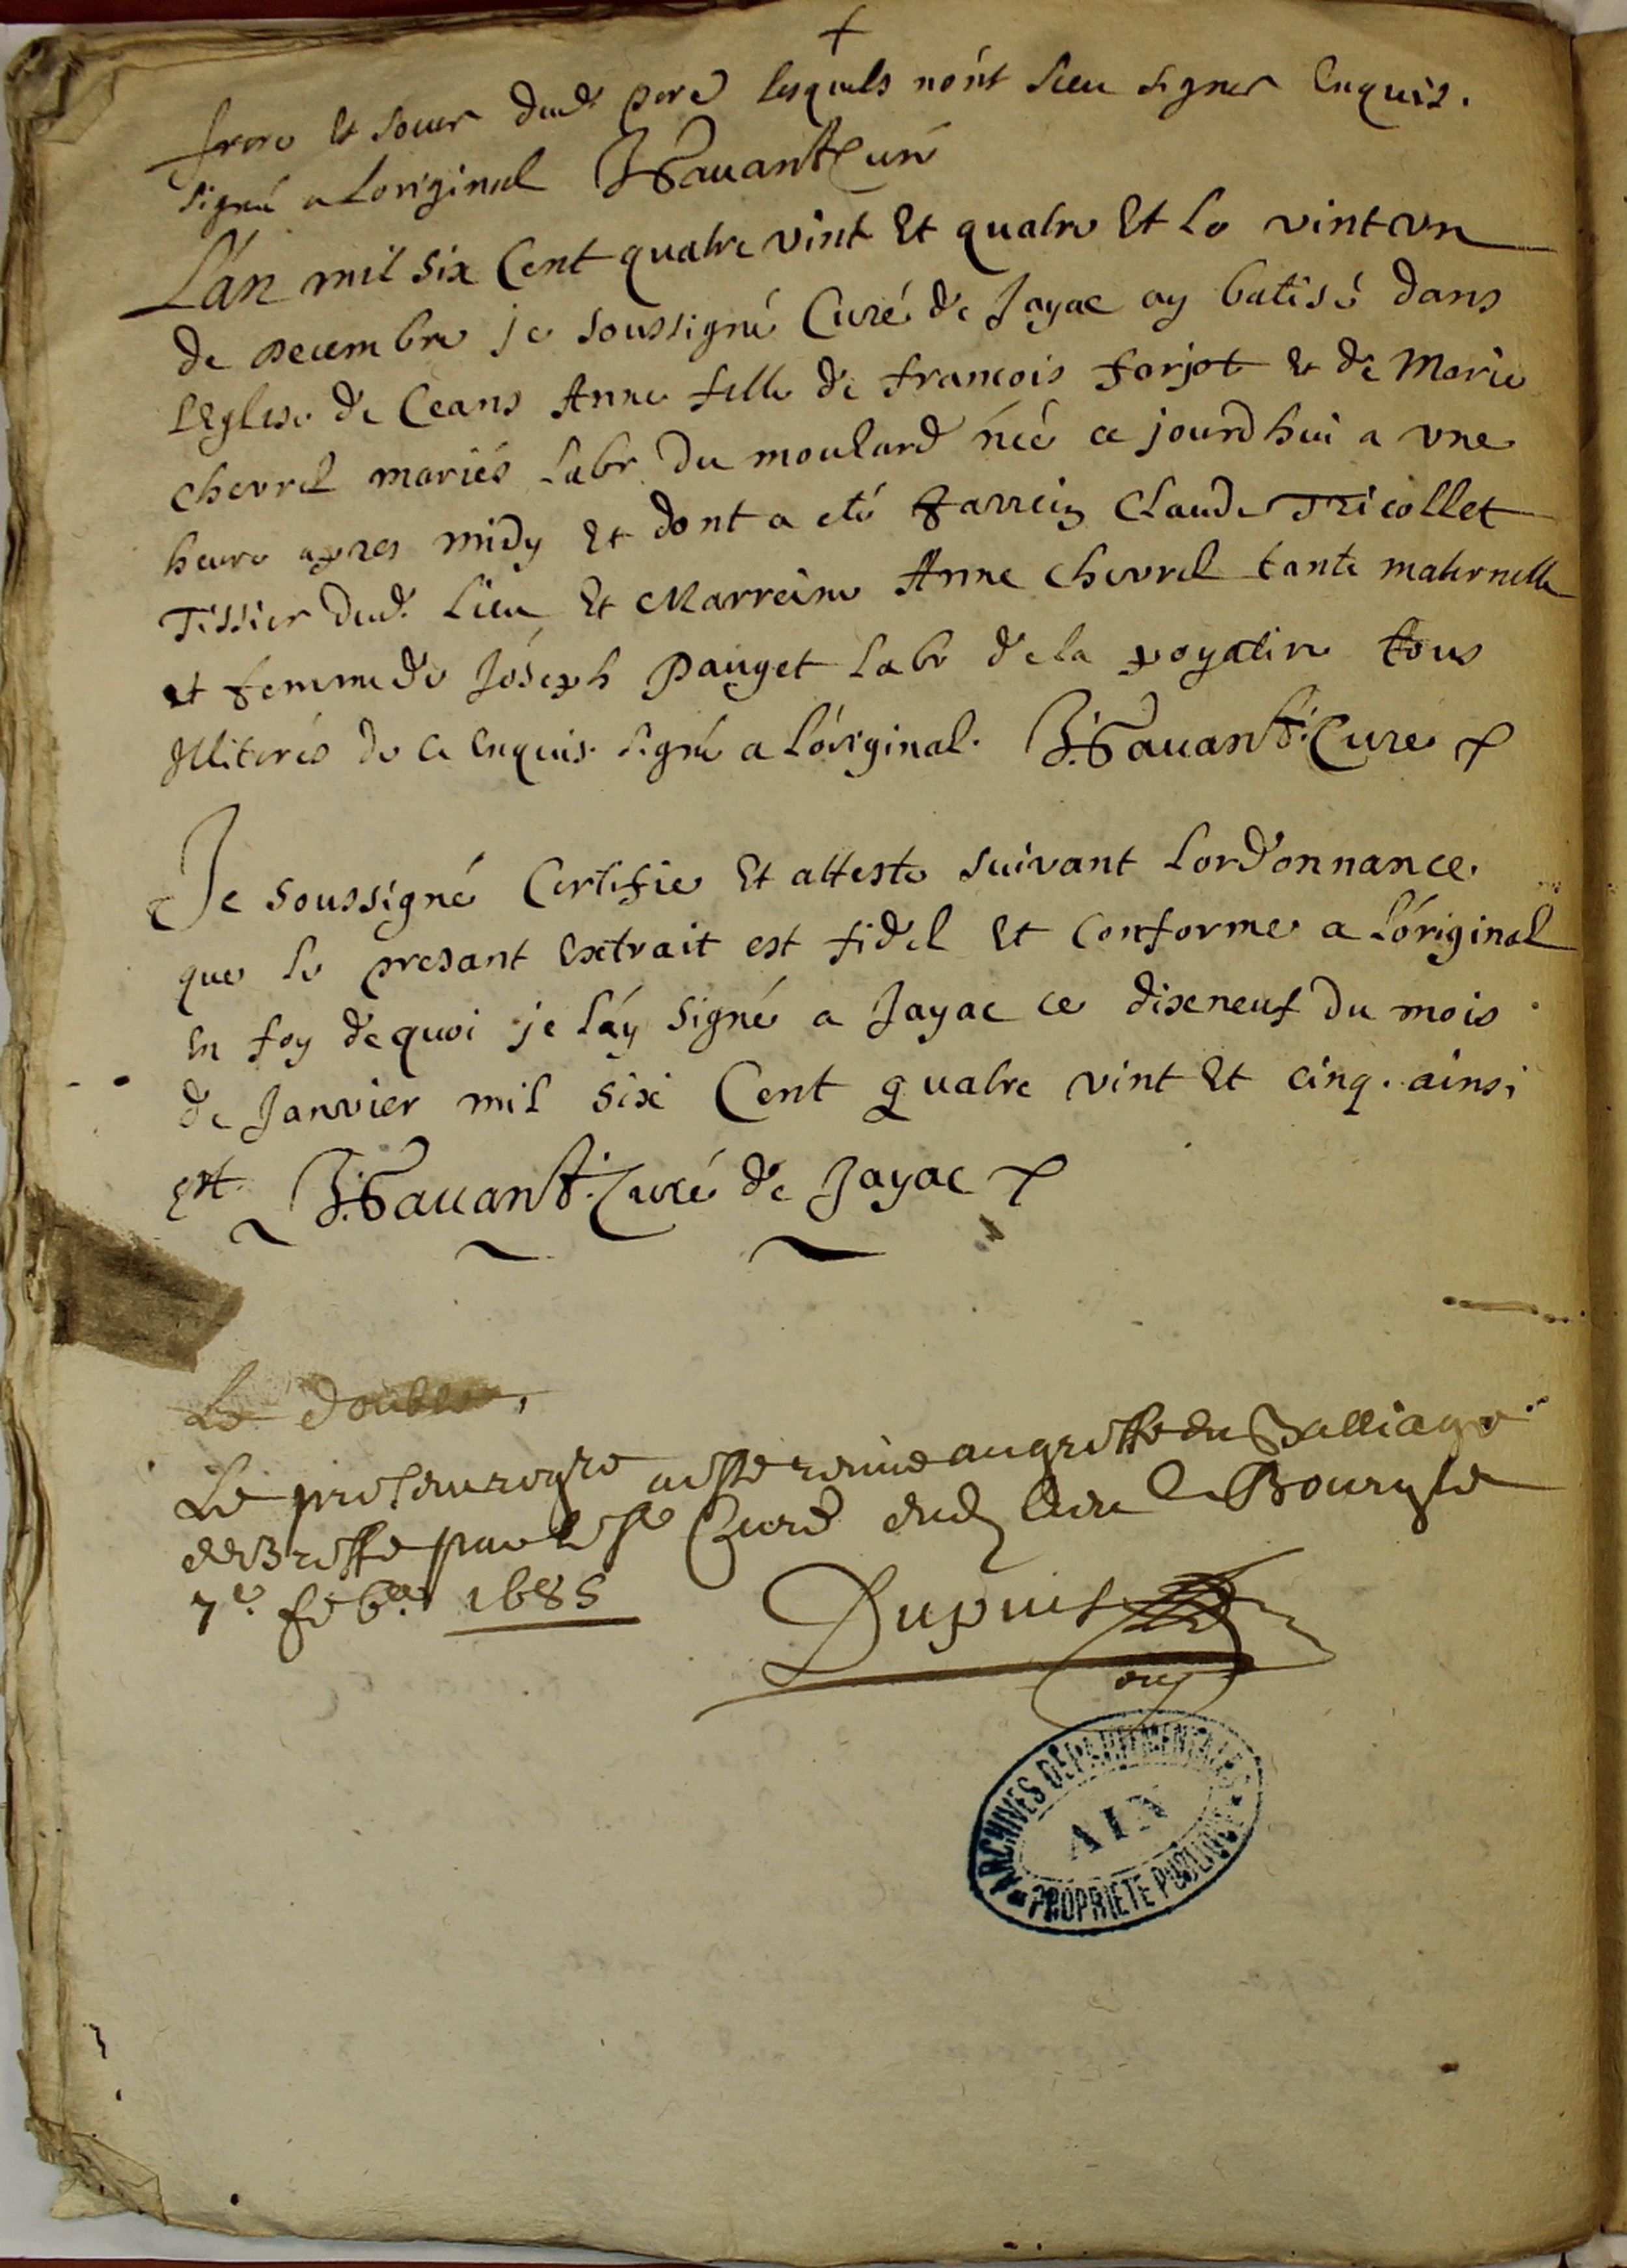 +
frere et soeur dud. pere lesquels nónt sceu signer Enquis.
signé a Loriginal Curé
L'an mil six Cent quatre vint Et quatre Et Le vint un
de Decembre je soussigné Curé de Jayac ay batisé dans
LEglise de Ceans Anne fille de francois forjot Et de Marie
Chevrel mariés Labr du moulard néé ce jourdhui a une
heure apres midy Et dont a eté Parrein Claude Tricollet
Tissier dud. Lieu Et Marreine Anne Chevrel tante maternelle
et femme de Joseph Pauget Labr de la poyatiere tous
Illiterés de ce Enquis. signé a Lóriginal. Curé
Je soussigné Certifie Et atteste suivant Lordonnance.
que le presant Extrait est fidel Et Conforme a Lóriginal
En foy de quoi je láy signé a Jayac ce dixneuf du mois
de Janvier mil six Cent quatre vint Et cinq. ainsi
est. Curé de Jayac
Le double
Le aesté remis au greffe du Balliage
de Bresse par Curé dud Lieu Bourg le
7e. feb. 1685
Dupuis
ARCHIVES DÉPARTEMENTALES
AIN
PROPRIÉTÉ PUBLIQUE